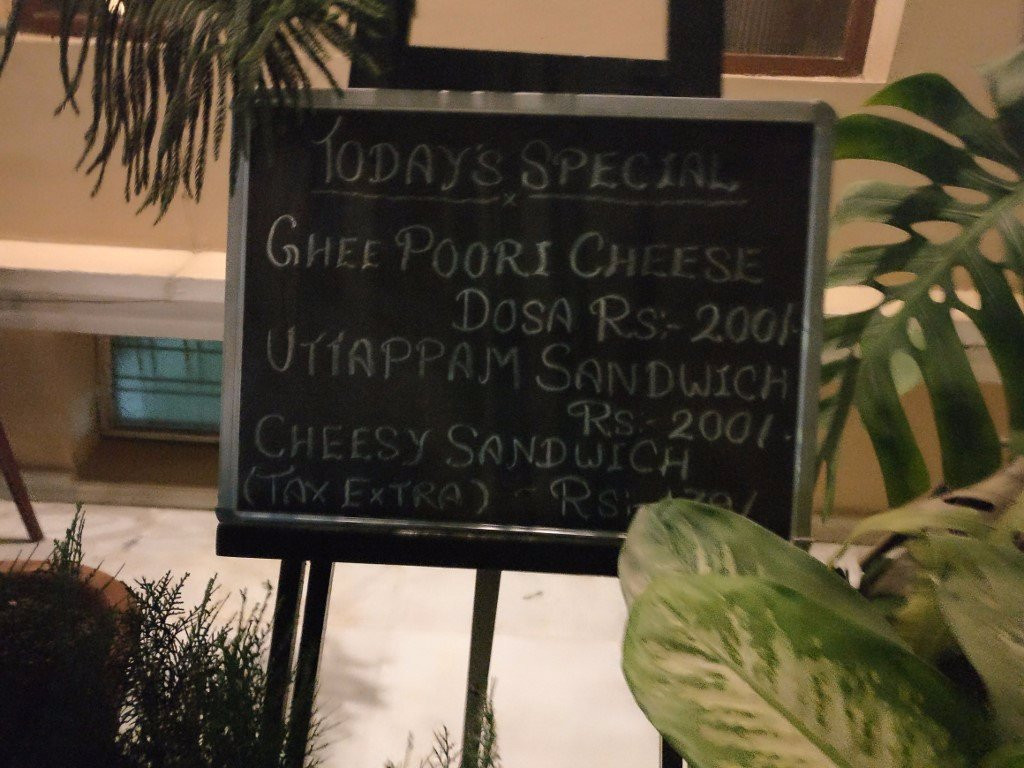 TODAY'S SPECIAL
GHEE POORI CHEESE
DOSA RS:- 200/-
UTTAPPAM SANDWICH
RS:- 200/-
CHEESY SANDWICH
(TAX EXTRA) - RS:-